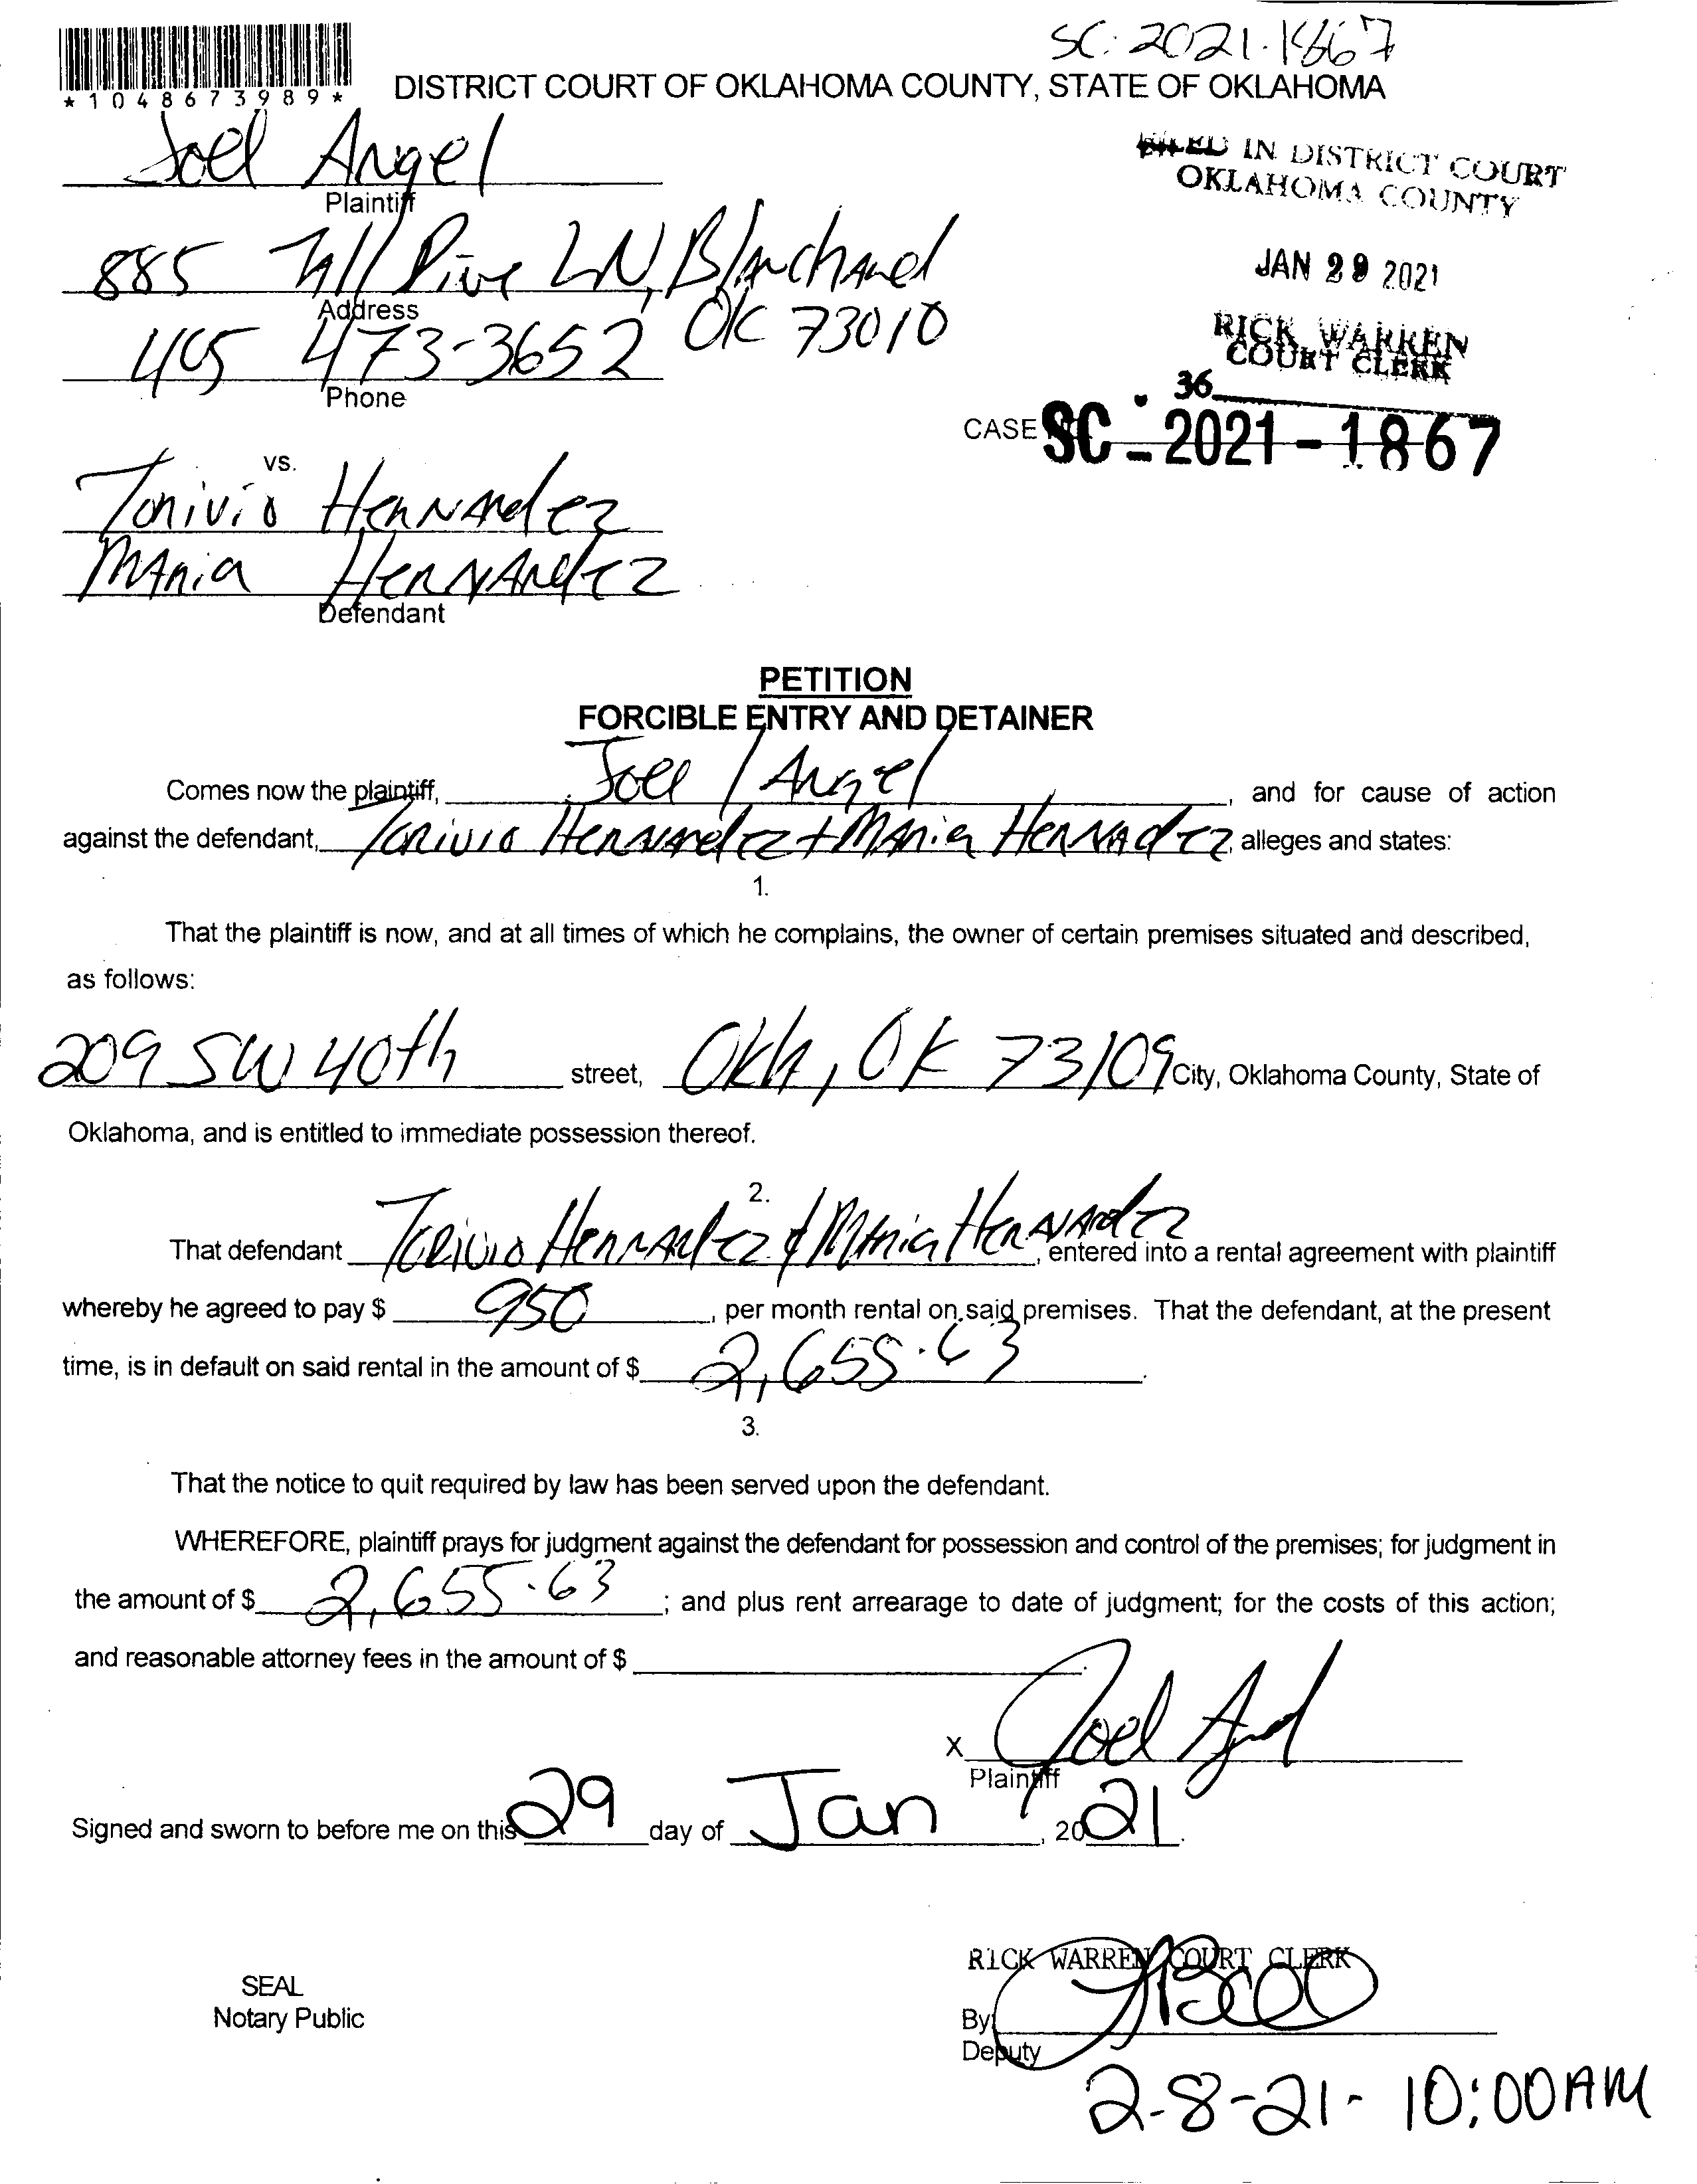 SC-2021-1867
*1048673989*
DISTRICT COURT OF OKLAHOMA COUNTY, STATE OF OKLAHOMA
Joel Angel
Plaintiff
FILED IN DISTRICT COURT
OKLAHOMA COUNTY
885 Tall Pine LN, Blanchard
Address
OK 73010
JAN 29 2021
405 473-3652
Phone
RICK WARREN
COURT CLERK
36
CASE SC-2021-1867
vs.
Torivio Hernandez
Maria Hernandez
Defendant
PETITION
FORCIBLE ENTRY AND DETAINER
Comes now the plaintiff, Joel Angel, and for cause of action
against the defendant, Torivio Hernandez + Maria Hernadez, alleges and states:
1.
That the plaintiff is now, and at all times of which he complains, the owner of certain premises situated and described,
as follows:
209 SW 40th street, Okla, OK 73109 City, Oklahoma County, State of
Oklahoma, and is entitled to immediate possession thereof.
2.
That defendant Torivio Hernandez & Maria Hernandez, entered into a rental agreement with plaintiff
whereby he agreed to pay $ 950, per month rental on said premises. That the defendant, at the present
time, is in default on said rental in the amount of $ 2,655.63.
3.
That the notice to quit required by law has been served upon the defendant.
WHEREFORE, plaintiff prays for judgment against the defendant for possession and control of the premises; for judgment in
the amount of $ 2,655.63; and plus rent arrearage to date of judgment; for the costs of this action;
and reasonable attorney fees in the amount of $
X Joel Angel
Plaintiff
Signed and sworn to before me on this 29 day of Jan, 2021.
RICK WARREN COURT CLERK
SEAL
Notary Public
By
Deputy
2-8-21- 10:00AM